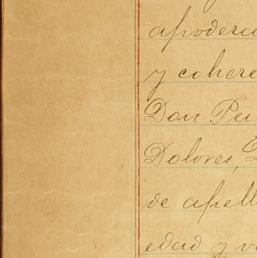 apodera
y cohere
Don Pe
Dolores,
de apell
edad y v